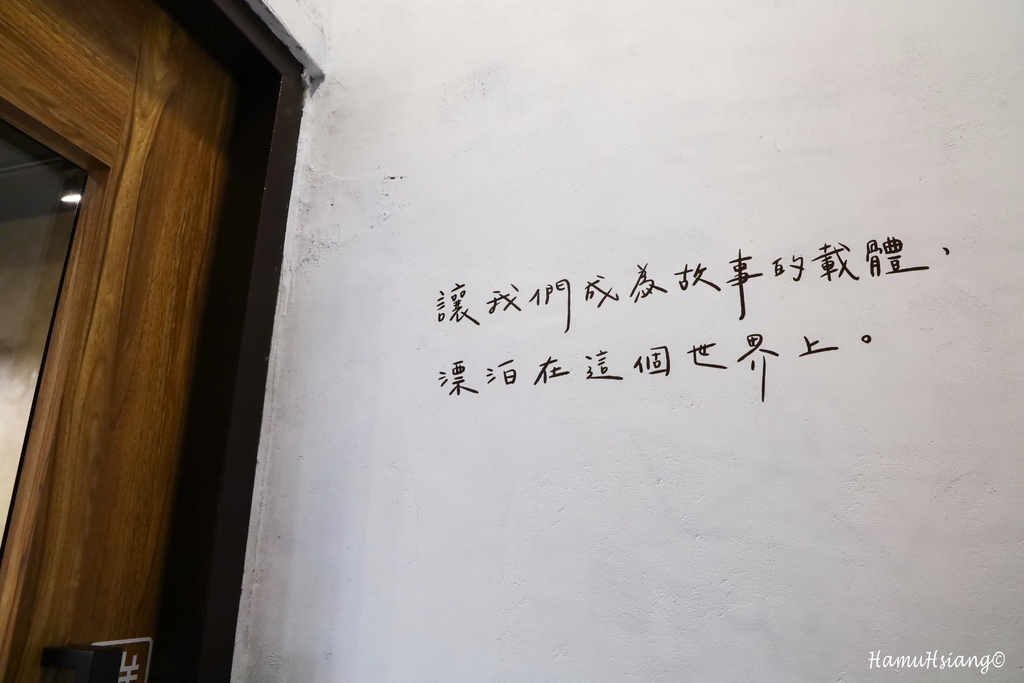 讓我們成為故事的載體，
漂泊在這個世界上。
HamuHsiang©